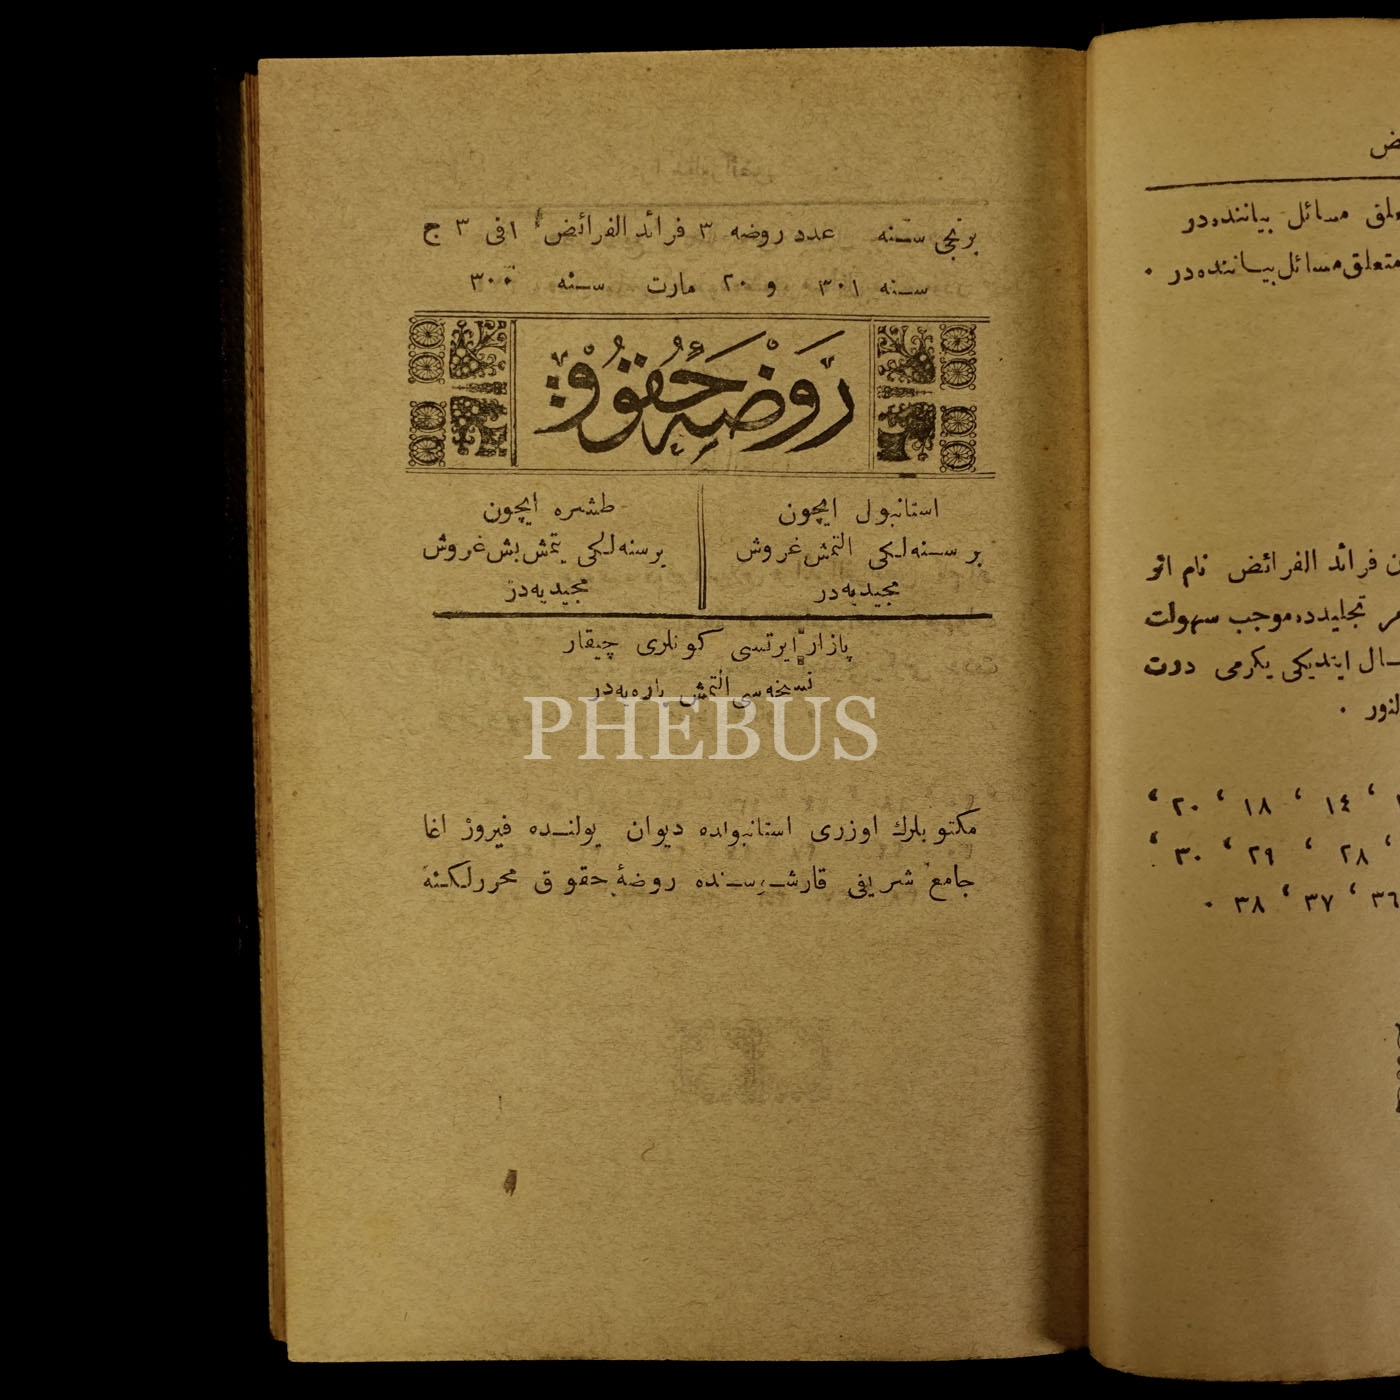 برنجی سنه عدد روضه ٣ فرائد الفرائض ١ فی ٣ ج
سنه ٣٠١ و ٢٠ مارت سنه ٣٠٠
رَوْضَهٔ حُقُوْق
استانبول ایچون
بر سنه‌لکی التمش غروش
مجیدیه‌در
طشره ایچون
بر سنه‌لکی یتمش بش غروش
مجیدیه‌در
پازار ایرتسی کونلری چیقار
نسخه‌سی التمش پاره‌یه‌در
PHEBUS
مکتوبلرك اوزری استانبولده دیوان یولنده فیروز اغا
جامع شریفی قارشیسنده روضهٔ حقوق محررلکنه
مسائل بیاننده‌در
متعلق مسائل بیاننده‌در ٠
فرائد الفرائض نام اثر
تجلیدده موجب سهولت
ایتدیکی یکرمی درت
١٤ ، ١٨ ، ٢٠ ،
٢٨ ، ٢٩ ، ٣٠ ،
٣٦ ، ٣٧ ، ٣٨ ٠